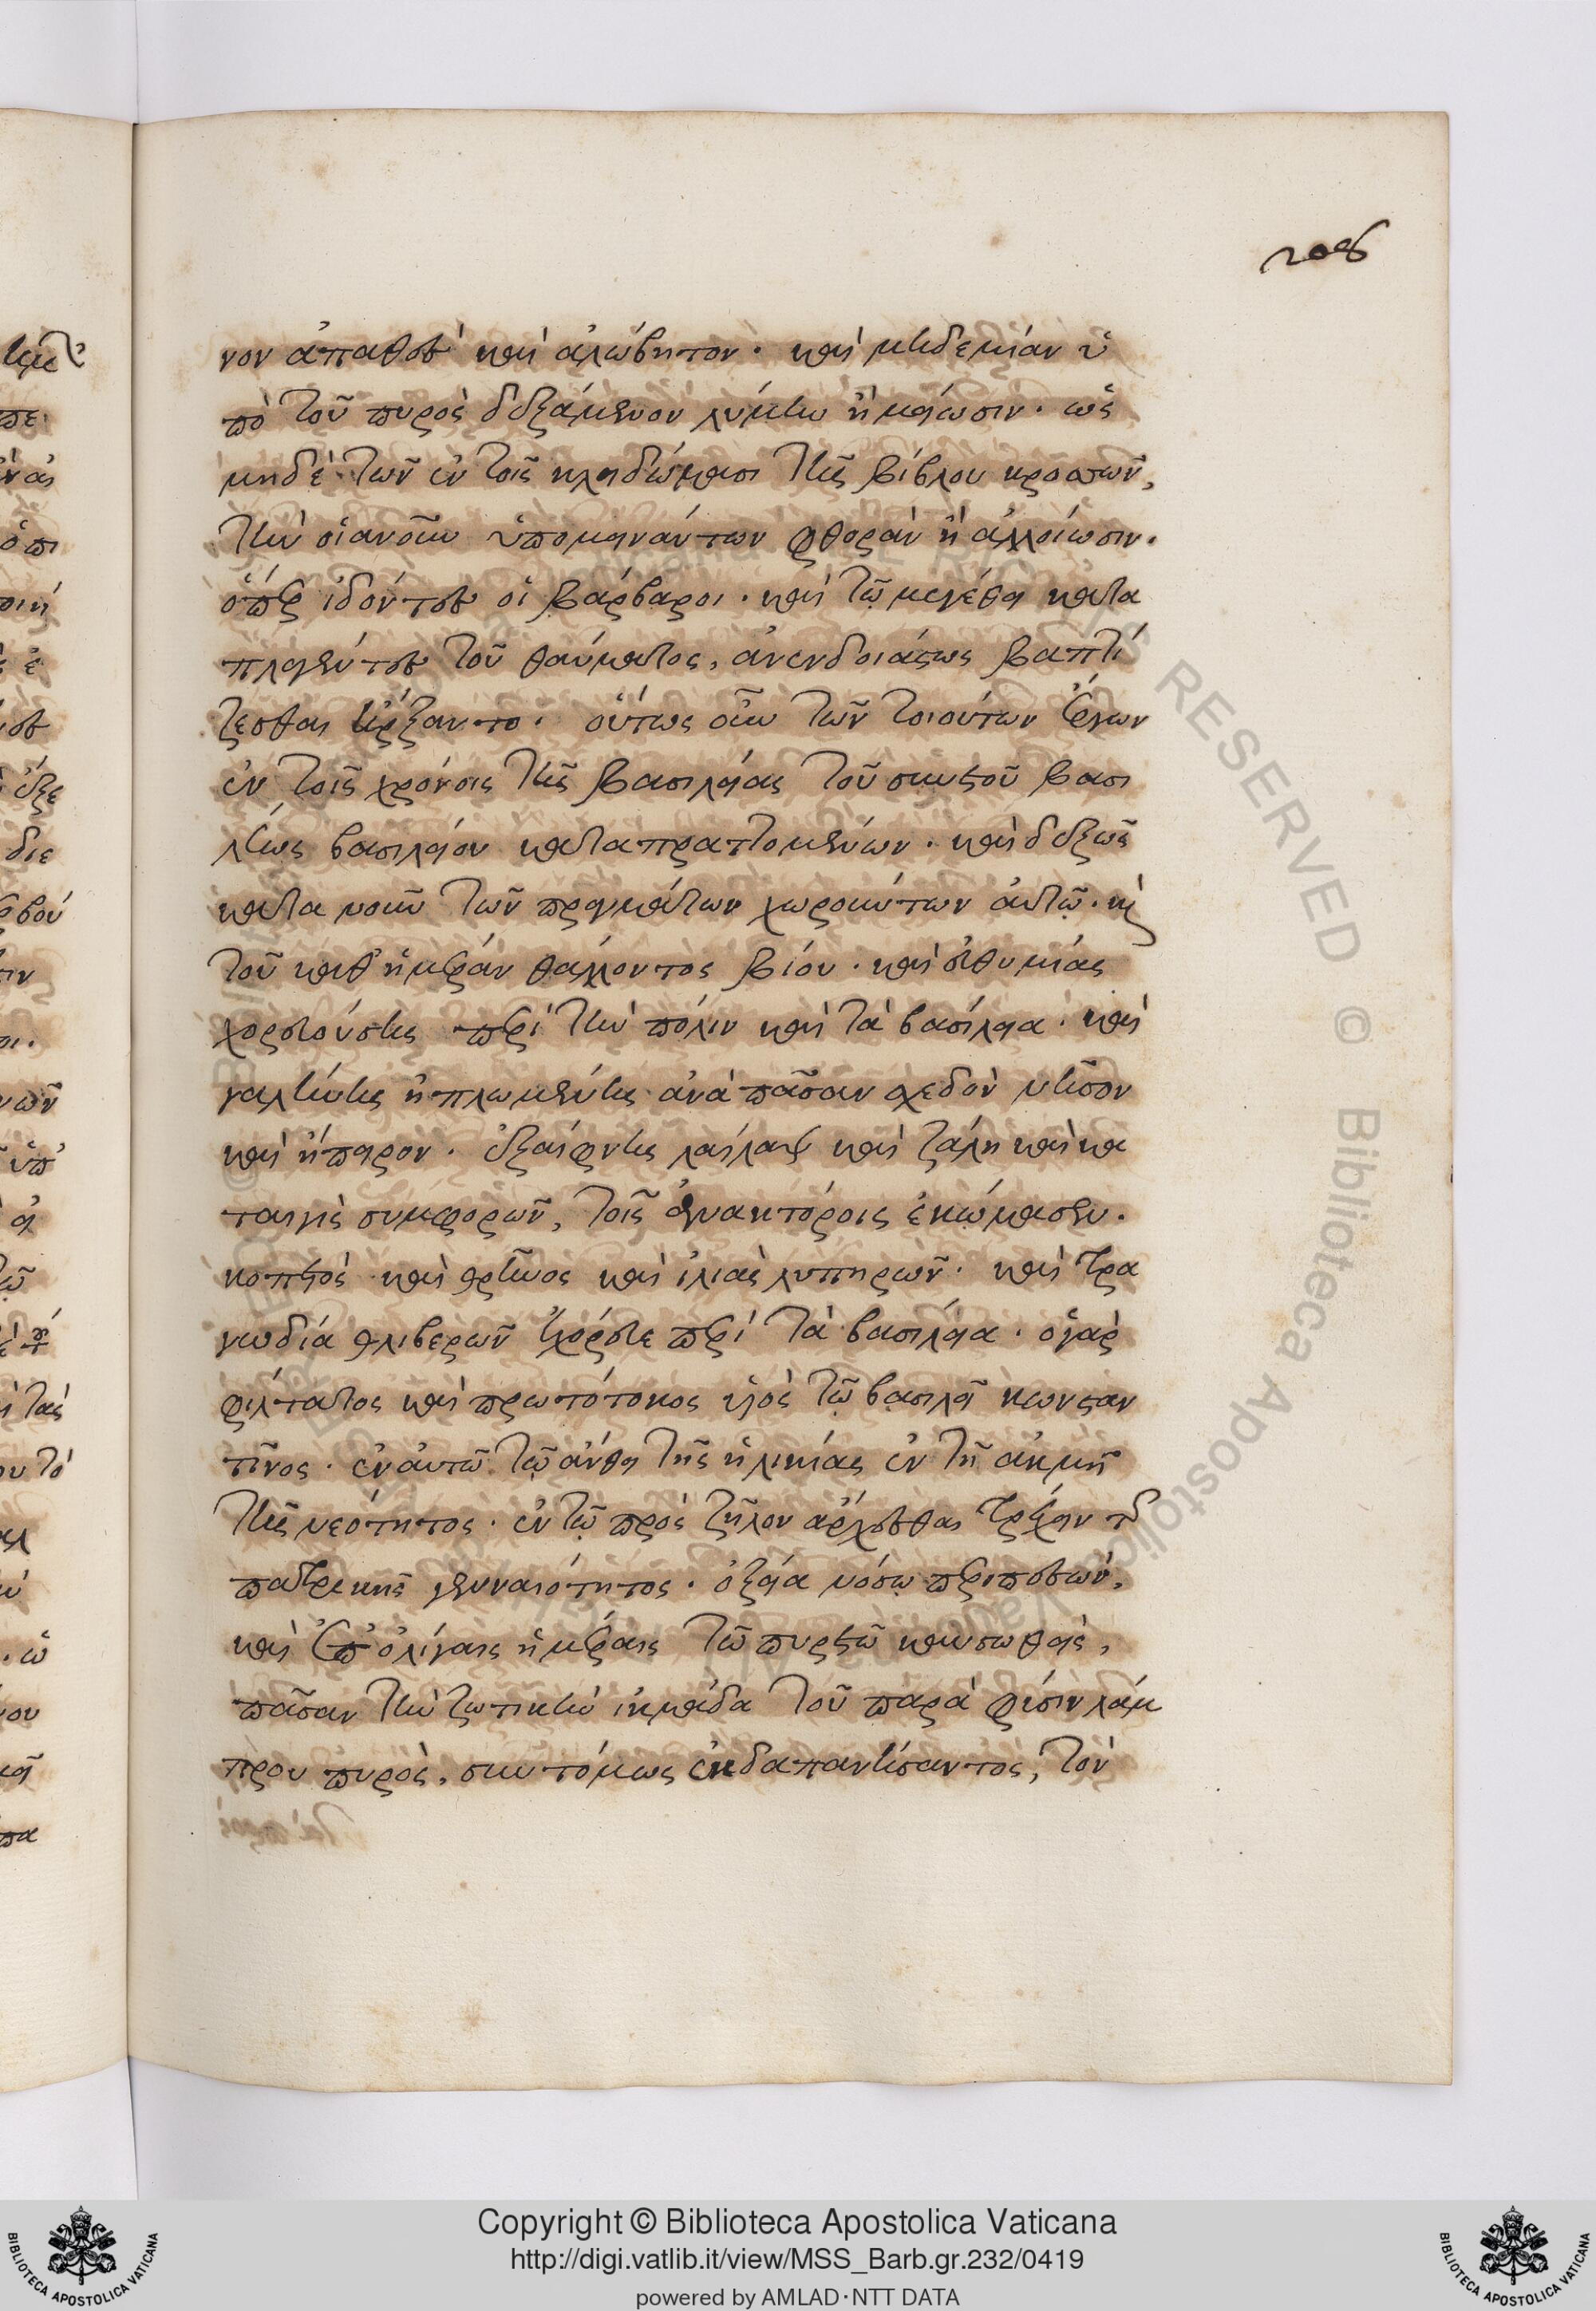 208
νον ἀπαθὲς καὶ ἀλώβητον. καὶ μηδεμίαν ὑ
πὸ τοῦ πυρὸς δεξάμενον λύμην ἢ μείωσιν. ὡς
μηδὲ τῶν ἐν τοῖς κλειδώμασι τῆς βίβλου κροσσῶν,
τὴν οἱανοῦν ὑπομεινάντων φθορὰν ἢ ἀλλοίωσιν.
ὅπερ ἰδόντες οἱ βάρβαροι. καὶ τῷ μεγέθει κατα
πλαγέντες τοῦ θαύματος, ἀνενδοιάστως βαπτί
ζεσθαι ἤρξαντο. οὕτως οὖν τῶν τοιούτων ἔργων
ἐν τοῖς χρόνοις τῆς βασιλείας τοῦ συνετοῦ βασι
λέως βασιλείου καταπραττομένων. καὶ δεξιῶς
κατα νοῦν τῶν πραγμάτων χωρούντων αὐτῷ. καὶ
τοῦ καθ' ἡμέραν θάλλοντος βίου. καὶ εὐθυμίας
χορευούσης περὶ τὴν πόλιν καὶ τὰ βασίλεια. καὶ
γαλήνης ἡπλωμένης ἀνὰ πᾶσαν σχεδὸν νῆσον
καὶ ἤπειρον. ἐξαίφνης λαίλαψ καὶ ζάλη καὶ κα
ταιγὶς συμφορῶν, τοῖς ἀνακτόροις ἐκώμασεν.
κοπετὸς καὶ θρῆνος καὶ ἰλιὰς λυπηρῶν. καὶ τρα
γωδία θλιβερῶν ἐχόρευε περὶ τὰ βασίλεια. ὁ γὰρ
φίλτατος καὶ πρωτότοκος υἱὸς τῷ βασιλεῖ κωνσταν
τῖνος. ἐν αὐτῶ τῷ ἄνθει τῆς ἡλικίας ἐν τῇ ἀκμῇ
τῆς νεότητος. ἐν τῷ πρὸς ζῆλον ἄρχεσθαι τρέχειν τῆς
πατρικῆς γενναιότητος. ὀξεία νόσω περιπεσών,
καὶ ἐπ' ὀλίγαις ἡμέραις τῶ πυρετῶ καυσωθεὶς,
πᾶσαν τὴν ζωτικὴν ἰκμάδα τοῦ παρὰ φύσιν λάμ
πρου πυρὸς, συντόμως ἐκδαπανήσαντος, τὸν
Copyright © Biblioteca Apostolica Vaticana
http://digi.vatlib.it/view/MSS_Barb.gr.232/0419
powered by AMLAD·NTT DATA